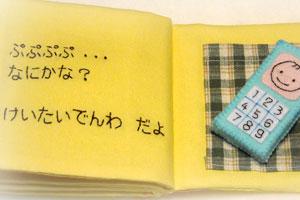 ぷぷぷぷ...
なにかな？
けいたいでんわ だよ
1 2 3
4 5 6
7 8 9